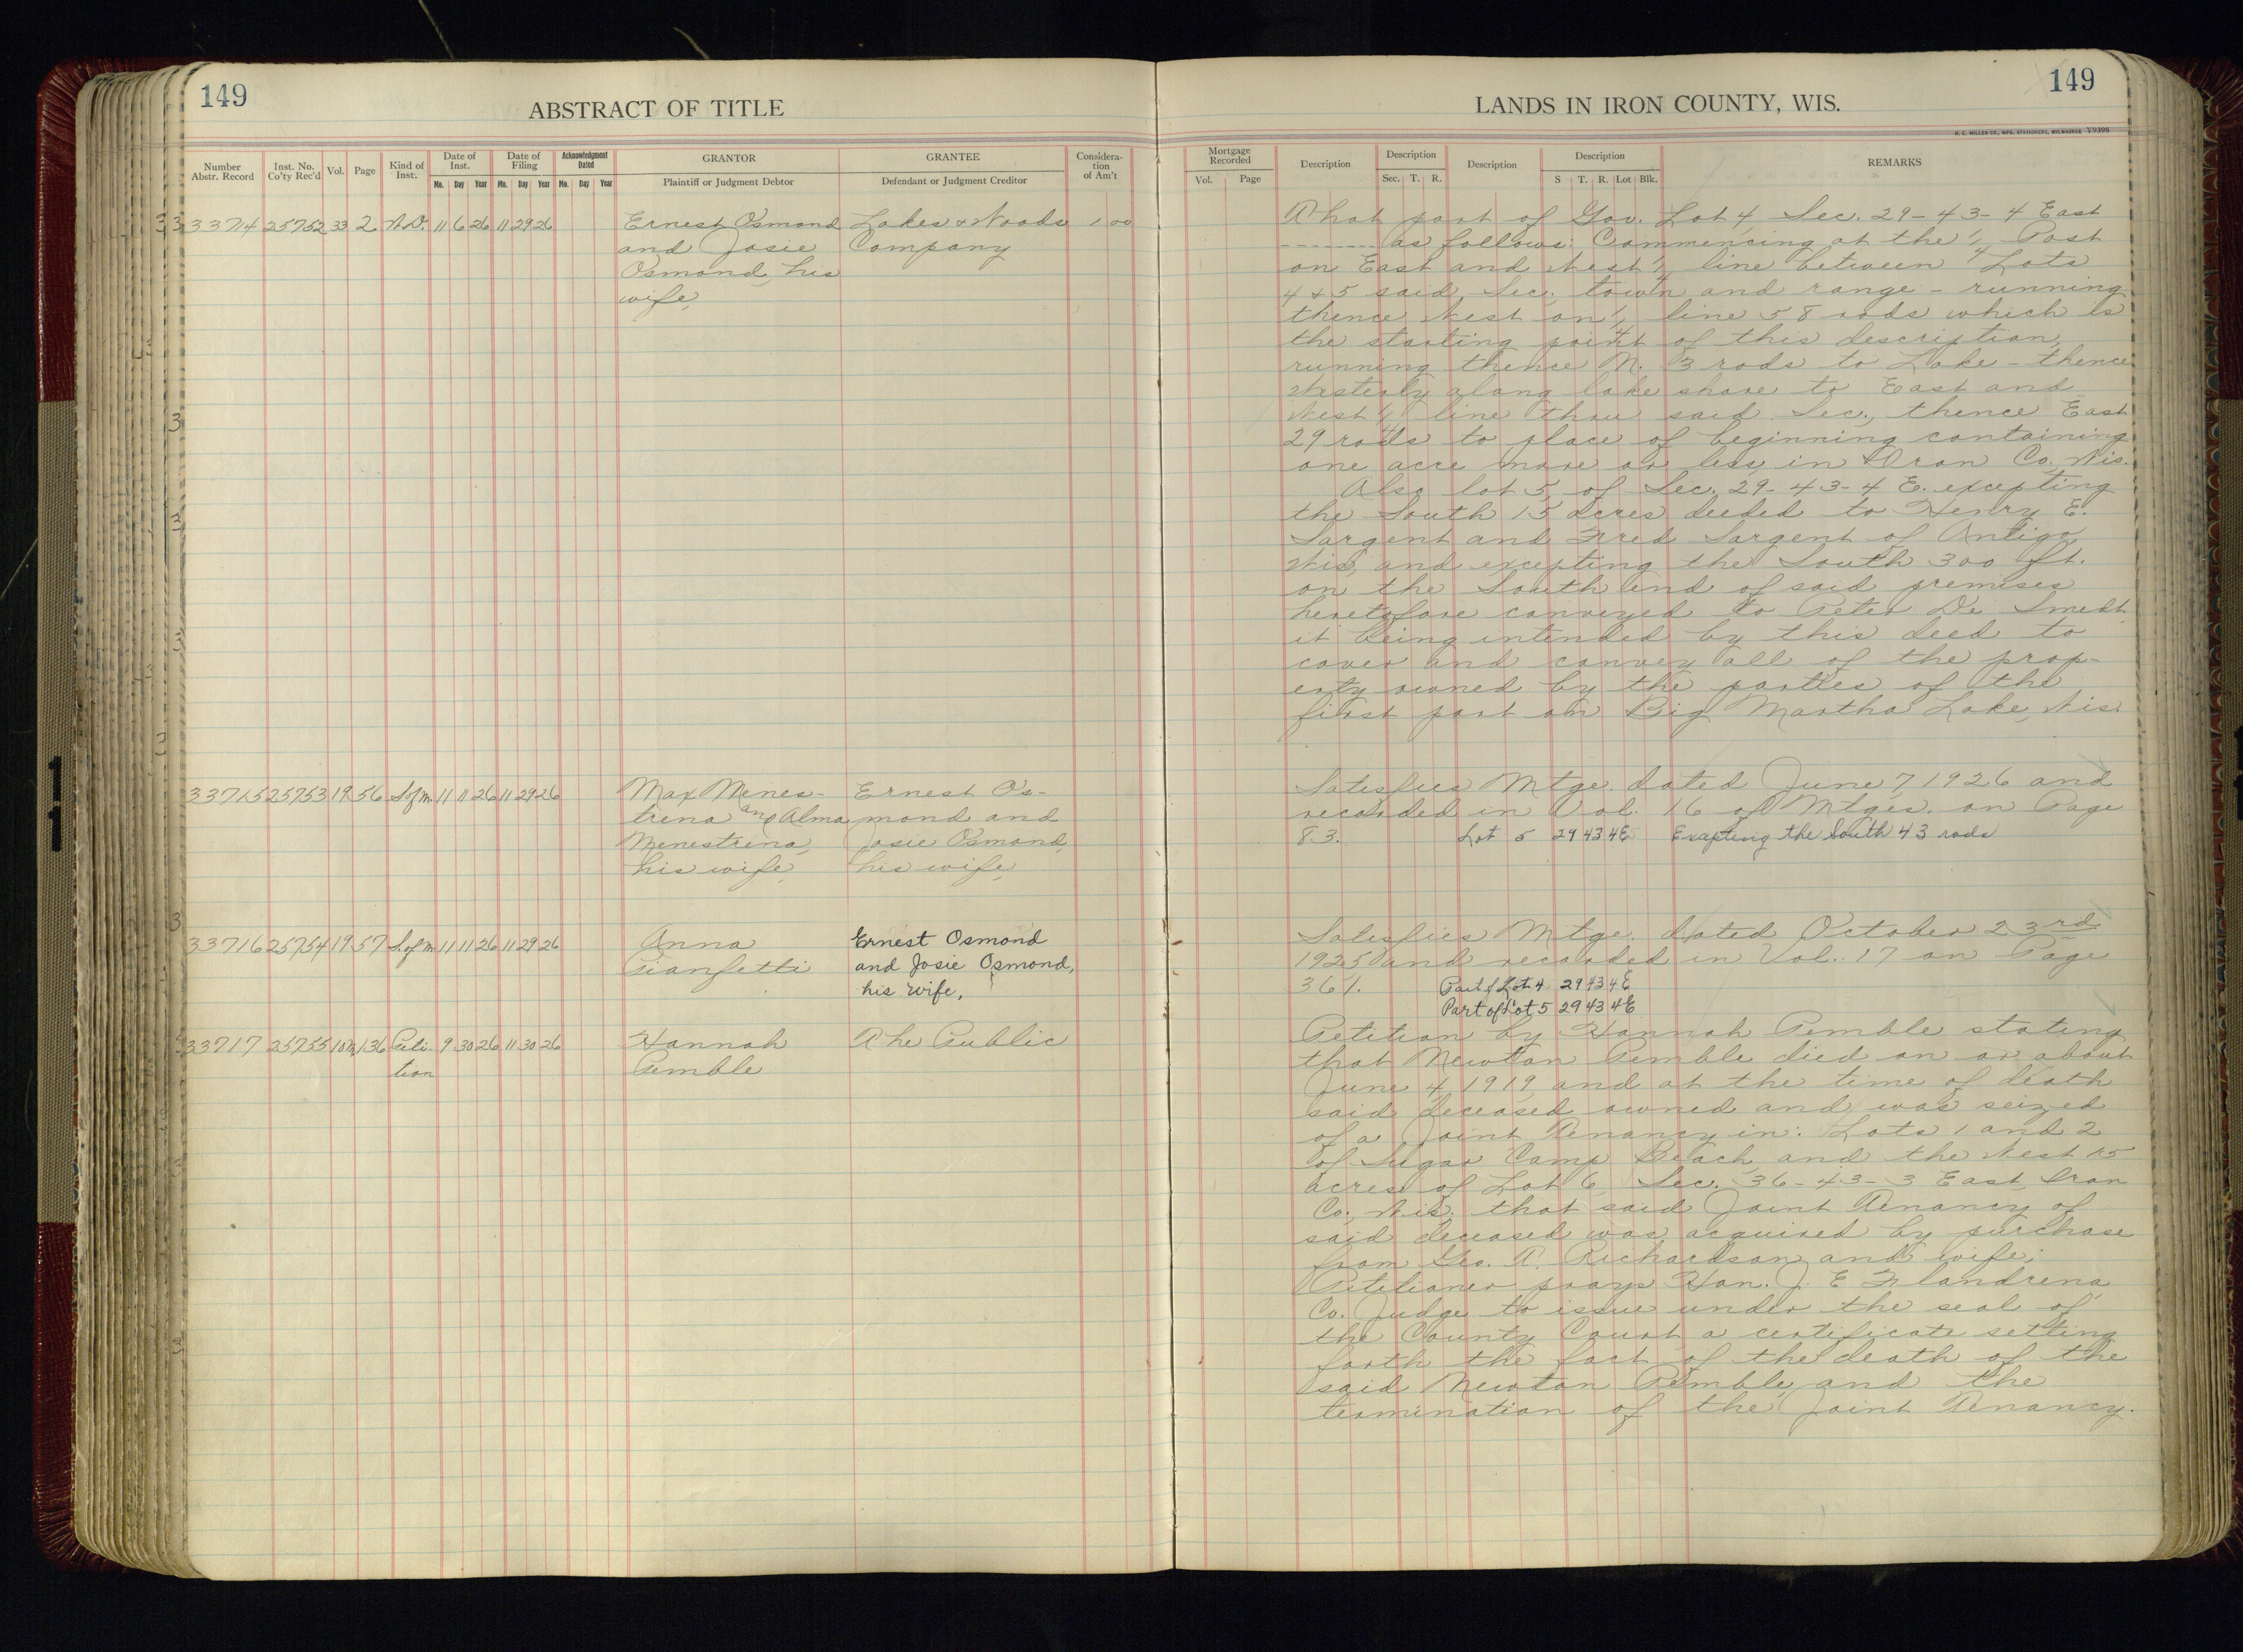 149
ABSTRACT OF TITLE
Number Abstr. Record
Inst. No. Co'ty Rec'd
Vol.
Page
Kind of Inst.
Date of Inst.
Mo. Day Year
Date of Filing
Mo. Day Year
Acknowledgment Dated
Mo. Day Year
GRANTOR
Plaintiff or Judgment Debtor
GRANTEE
Defendant or Judgment Creditor
Consideration of Am't
33714 25752 33 2 W.D. 11 6 26 11 29 26 Ernest Osmond Lakes & Woods 1 00
and Josie Company
Osmond, his
wife,
33715 25753 19 56 S of m. 11 11 26 11 29 26 Max Menes- Ernest Os-
trena and Alma mond and
Menestrena, Josie Osmond,
his wife, his wife,
33716 25754 19 57 S. of m. 11 11 26 11 29 26 Anna Ernest Osmond
Gianfetti and Josie Osmond,
his wife,
33717 25755 10m 136 Peti- 9 30 26 11 30 26 Hannah The Public
tion Pemble
LANDS IN IRON COUNTY, WIS.
149
H. C. MILLER CO., MFG. STATIONERS, MILWAUKEE Y9398
Mortgage Recorded
Vol. Page
Description
Description
Sec. T. R.
Description
Description
S T. R. Lot Blk.
REMARKS
That part of Gov. Lot 4, Sec. 29-43-4 East
-------- as follows: Commencing at the 1/4 Post
on East and West 1/4 line between Lots
4 & 5 said Sec., town and range - running
thence West on 1/4 line 58 rods which is
the starting point of this description,
running thence N. 3 rods to Lake - thence
Westerly along lake shore to East and
West 1/4 line thru said Sec., thence East
29 rods to place of beginning containing
one acre more or less, in Iron Co. Wis.
Also lot 5, of Sec. 29-43-4 E. excepting
the South 15 acres deeded to Henry E.
Sargent and Fred Sargent of Antigo,
Wis, and excepting the South 300 ft.
on the South end of said premises
heretofore conveyed to Peter De Smedt,
it being intended by this deed to
cover and convey all of the prop-
erty owned by the parties of the
first part on Big Martha Lake, Wis.
Satisfies Mtge. dated June 7, 1926 and
recorded in Vol. 16 of Mtges. on Page
83. Lot 5 29 43 4E Excepting the South 43 rods
Satisfies Mtge. dated October 23rd
1925 and recorded in Vol. 17 on Page
361. Part of Lot 4 29 43 4E
Part of Lot 5 29 43 4E
Petition by Hannah Pemble stating
that Newton Pemble died on or about
June 4, 1919, and at the time of death
said deceased owned and was seized
of a Joint Tenancy in: Lots 1 and 2
of Sugar Camp Beach, and the West 15
acres of Lot 6, Sec. 36-43-3 East, Iron
Co., Wis. that said Joint Tenancy of
said deceased was acquired by purchase
from Geo. R. Richardson and wife;
Petitioner prays Hon. J. E Flandrena,
Co. Judge to issue under the seal of
the County Court a certificate setting
forth the fact of the death of the
said Newton Pemble, and the
termination of the Joint Tenancy.